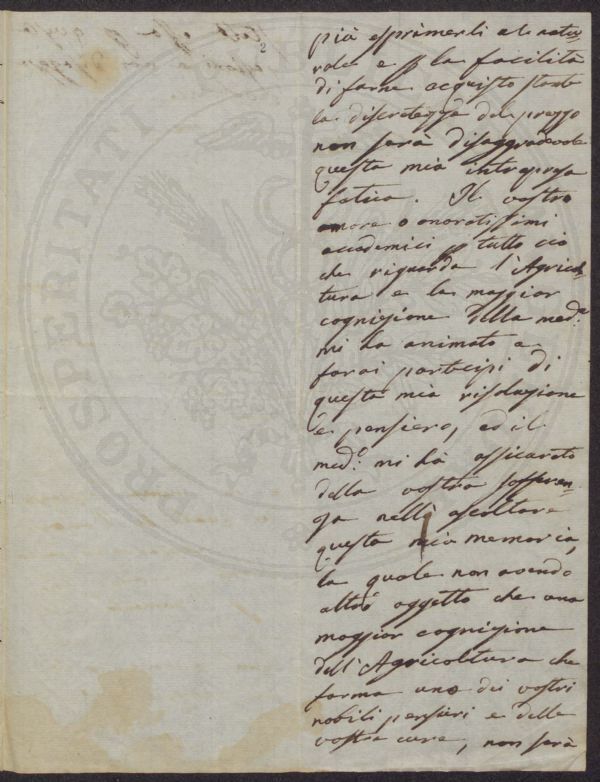 più esprimerli al natu-
rale e p la facilità
di farne acquisto stante
la discretezza del prezzo
non sarà disaggradevole
questa mia intrapresa
fatica. Il vostro
amore o onoratissimi
accademici p tutto ciò
che riguarda l'Agricol-
tura e la maggior
cognizione della med.a
mi ha animato a
farvi partecipi di
questa mia risoluzione
e pensiero, ed il
med.o mi hà assicurato
della vostra sofferen-
za nell' ascoltare
questa mia memoria,
la quale non avendo
altro oggetto che una
maggior cognizione
dell'Agricoltura che
forma uno dei vostri
nobili pensieri e delle
vostre cure, non sarà
2
PROSPERITATI